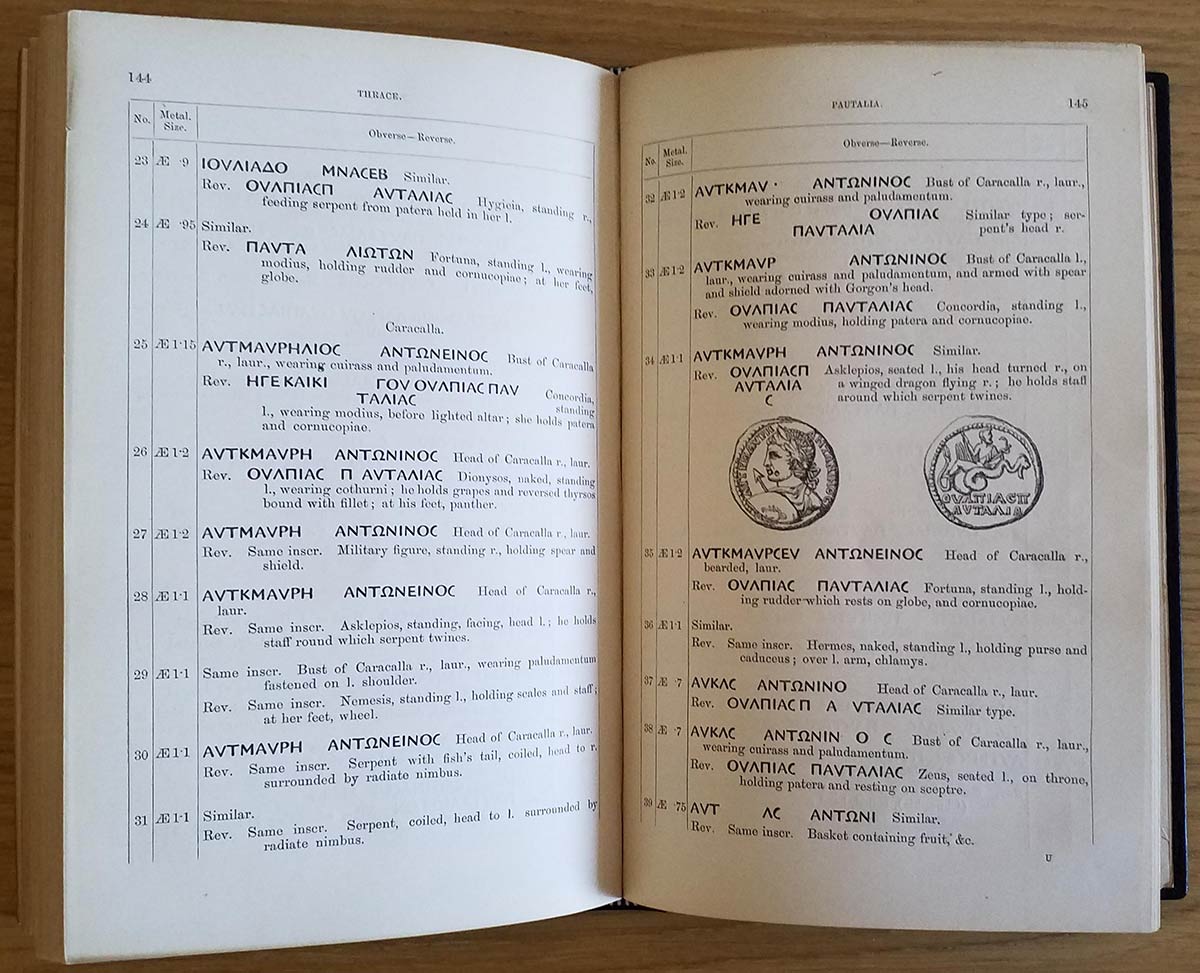 144
THRACE.
No. Metal. Size. Obverse—Reverse.
23 Æ ·9 ΙΟΥΛΙΑΔΟ ΜΝΑCΕΒ Similar.
Rev. ΟΥΛΠΙΑCΠ ΑΥΤΑΛΙΑC Hygieia, standing r.,
feeding serpent from patera held in her l.
24 Æ ·95 Similar.
Rev. ΠΑΥΤΑ ΛΙΩΤΩΝ Fortuna, standing l., wearing
modius, holding rudder and cornucopiae; at her feet,
globe.
Caracalla.
25 Æ 1·15 ΑΥΤΜΑΥΡΗΛΙΟC ΑΝΤΩΝΕΙΝΟC Bust of Caracalla
r., laur., wearing cuirass and paludamentum.
Rev. ΗΓΕ ΚΑΙΚΙ ΓΟΥ ΟΥΛΠΙΑC ΠΑΥ Concordia,
ΤΑΛΙΑC standing
l., wearing modius, before lighted altar; she holds patera
and cornucopiae.
26 Æ 1·2 ΑΥΤΚΜΑΥΡΗ ΑΝΤΩΝΙΝΟC Head of Caracalla r., laur.
Rev. ΟΥΛΠΙΑC Π ΑΥΤΑΛΙΑC Dionysos, naked, standing
l., wearing cothurni; he holds grapes and reversed thyrsos
bound with fillet; at his feet, panther.
27 Æ 1·2 ΑΥΤΜΑΥΡΗ ΑΝΤΩΝΙΝΟC Head of Caracalla r., laur.
Rev. Same inscr. Military figure, standing r., holding spear and
shield.
28 Æ 1·1 ΑΥΤΚΜΑΥΡΗ ΑΝΤΩΝΕΙΝΟC Head of Caracalla r.,
laur.
Rev. Same inscr. Asklepios, standing, facing, head l.; he holds
staff round which serpent twines.
29 Æ 1·1 Same inscr. Bust of Caracalla r., laur., wearing paludamentum
fastened on l. shoulder.
Rev. Same inscr. Nemesis, standing l., holding scales and staff;
at her feet, wheel.
30 Æ 1·1 ΑΥΤΜΑΥΡΗ ΑΝΤΩΝΕΙΝΟC Head of Caracalla r., laur.
Rev. Same inscr. Serpent with fish's tail, coiled, head to r.
surrounded by radiate nimbus.
31 Æ 1·1 Similar.
Rev. Same inscr. Serpent, coiled, head to l. surrounded by
radiate nimbus.
PAUTALIA. 145
No. Metal. Size. Obverse—Reverse.
32 Æ 1·2 ΑΥΤΚΜΑΥ · ΑΝΤΩΝΙΝΟC Bust of Caracalla r., laur.,
wearing cuirass and paludamentum.
Rev. ΗΓΕ ΟΥΛΠΙΑC Similar type; ser-
ΠΑΥΤΑΛΙΑ pent's head r.
33 Æ 1·2 ΑΥΤΚΜΑΥΡ ΑΝΤΩΝΙΝΟC Bust of Caracalla l.,
laur., wearing cuirass and paludamentum, and armed with spear
and shield adorned with Gorgon's head.
Rev. ΟΥΛΠΙΑC ΠΑΥΤΑΛΙΑC Concordia, standing l.,
wearing modius, holding patera and cornucopiae.
34 Æ 1·1 ΑΥΤΚΜΑΥΡΗ ΑΝΤΩΝΙΝΟC Similar.
Rev. ΟΥΛΠΙΑCΠ Asklepios, seated l., his head turned r., on
ΑΥΤΑΛΙΑ a winged dragon flying r.; he holds staff
C around which serpent twines.
ΟΥΛΠΙΑCΠ
ΑΥΤΑΛΙΑ
35 Æ 1·2 ΑΥΤΚΜΑΥΡCΕΥ ΑΝΤΩΝΕΙΝΟC Head of Caracalla r.,
bearded, laur.
Rev. ΟΥΛΠΙΑC ΠΑΥΤΑΛΙΑC Fortuna, standing l., hold-
ing rudder which rests on globe, and cornucopiae.
36 Æ 1·1 Similar.
Rev. Same inscr. Hermes, naked, standing l., holding purse and
caduceus; over l. arm, chlamys.
37 Æ ·7 ΑΥΚΛC ΑΝΤΩΝΙΝΟ Head of Caracalla r., laur.
Rev. ΟΥΛΠΙΑC Π Α ΥΤΑΛΙΑC Similar type.
38 Æ ·7 ΑΥΚΛC ΑΝΤΩΝΙΝ Ο C Bust of Caracalla r., laur.,
wearing cuirass and paludamentum.
Rev. ΟΥΛΠΙΑC ΠΑΥΤΑΛΙΑC Zeus, seated l., on throne,
holding patera and resting on sceptre.
39 Æ ·75 ΑΥΤ ΛC ΑΝΤΩΝΙ Similar.
Rev. Same inscr. Basket containing fruit, &c.
U